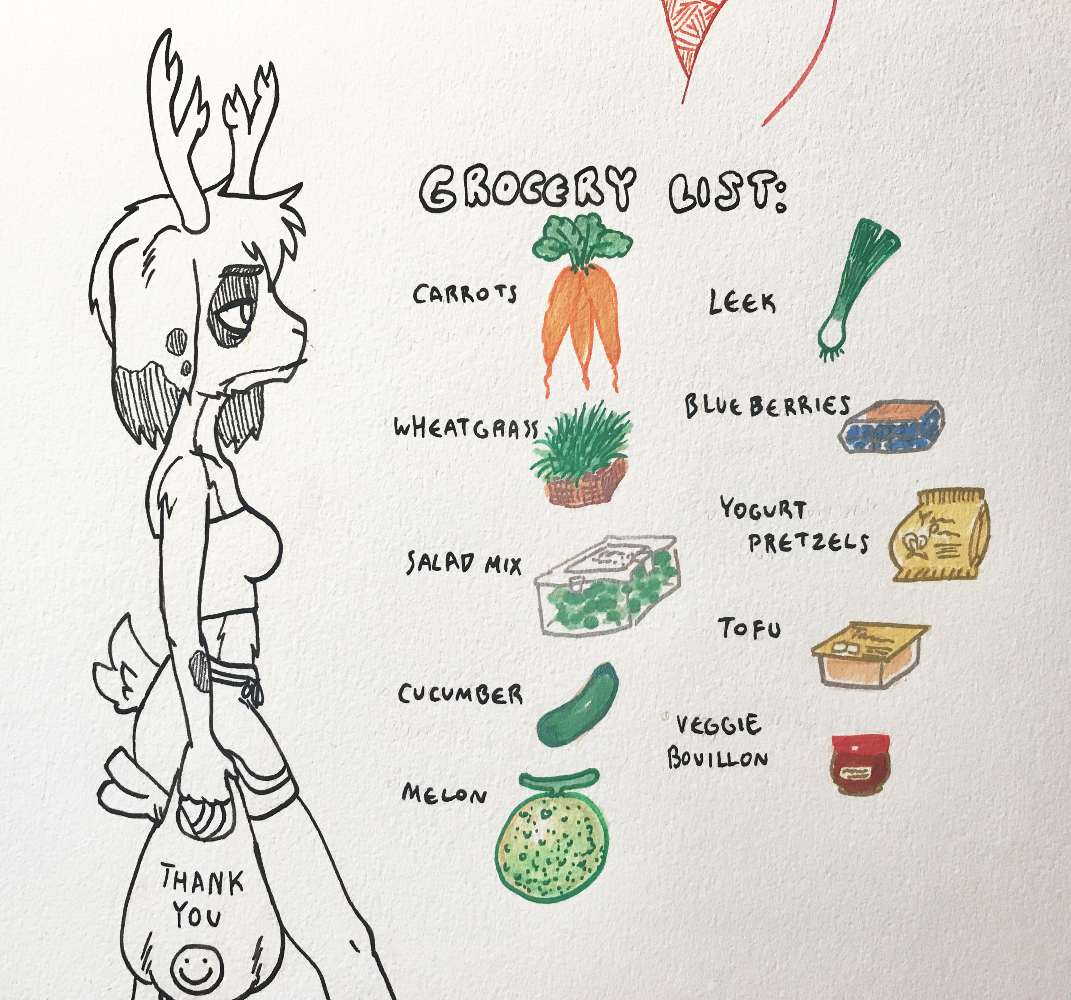 GROCERY LIST:
CARROTS
WHEATGRASS
SALAD MIX
CUCUMBER
MELON
LEEK
BLUEBERRIES
YOGURT
PRETZELS
TOFU
VEGGIE
BOUILLON
THANK
YOU